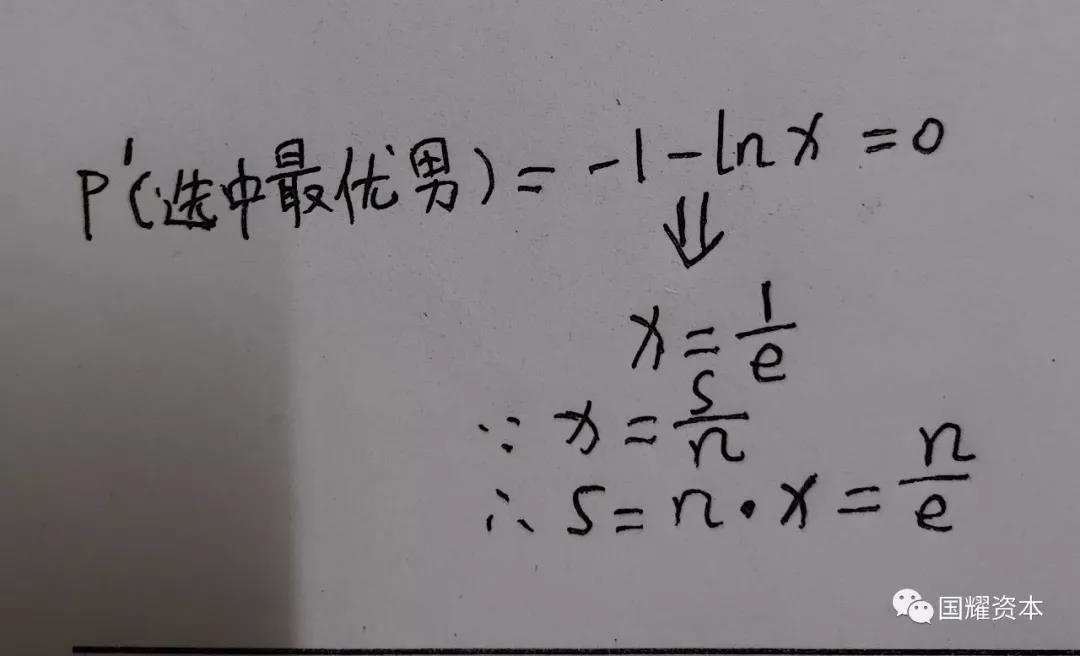 P'(选中最优男) = -1 - ln x = 0
⇓
x = 1/e
∵ x = s/n
∴ s = n · x = n/e
国耀资本